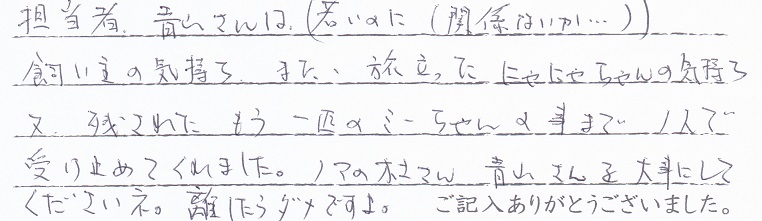 担当者、青山さんは、(若いのに(関係ないか…))
飼い主の気持ち、また、旅立った にゃにゃちゃんの気持ち
又、残された もう一匹のミーちゃんの事まで 1人で
受け止めてくれました。 青山さんを大事にして
くださいネ。離したらダメですよ。 ご記入ありがとうございました。